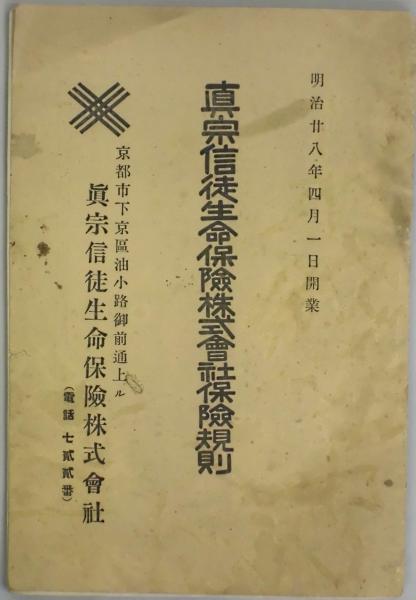 明治廿八年四月一日開業
真宗信徒生命保險株式會社保險規則
京都市下京區油小路御前通上ル
眞宗信徒生命保險株式會社
(電話 七貳貳番)